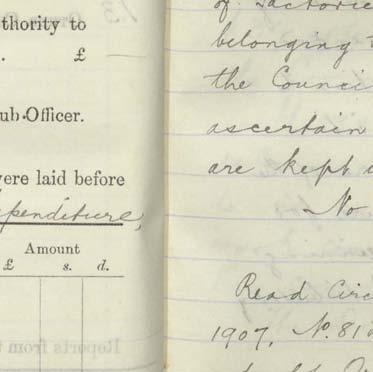 thority to
. £
ub-Officer.
ere laid before
penditure,
Amount
£ s. d.
of
belonging
the Counci
ascertain
are kept
No
Read Circ
1907, No. 81